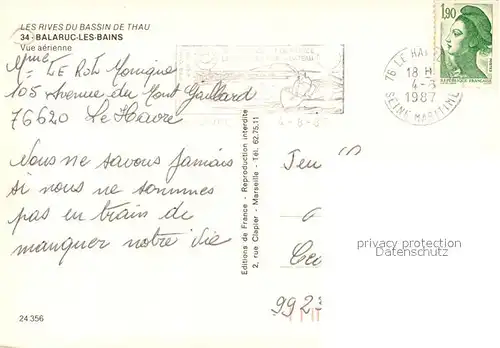 LES RIVES DU BASSIN DE THAU
34 - BALARUC-LES-BAINS
Vue aérienne
Mme LE ROL Monique
105 Avenue du Mont Gaillard
76620 Le Havre
Nous ne savons jamais
si nous ne sommes
pas en train de
manquer notre vie
24 356
Editions de France - Reproduction interdite
2, rue Clapier - Marseille - Tél. 62.75.11
1,90
REPUBLIQUE FRANÇAISE
76 LE HA
18 H
4-
1987
SEINE MARITIME
4-8-
992
privacy protection
DanMarketi